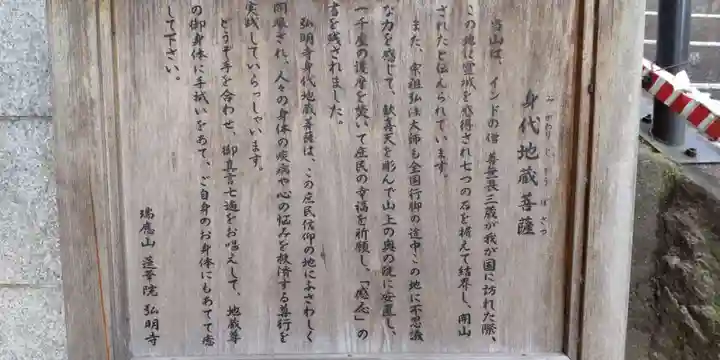 身代地蔵菩薩
み がわり じ ぞう ぼ さつ
当山は、インドの僧 善無畏三蔵が我が国に訪れた際、
この地に霊域を感得され七つの石を据えて結界し、開山
されたと伝えられています。
また、宗祖弘法大師も全国行脚の途中この地に不思議
な力を感じて、歓喜天を彫んで山上の奥の院に安置し、
一千座の護摩を焚いて庶民の幸福を祈願し、「感応」の
書を残されました。
弘明寺身代地蔵菩薩は、この庶民信仰の地にふさわしく
開眼され、人々の身体の疾病や心の悩みを救済する善行を
実践していらっしゃいます。
どうぞ手を合わせ、御真言七遍をお唱えして、地蔵尊
の御身体に手拭いをあて、ご自身のお身体にもあてて癒
して下さい。
瑞應山 蓮華院 弘明寺